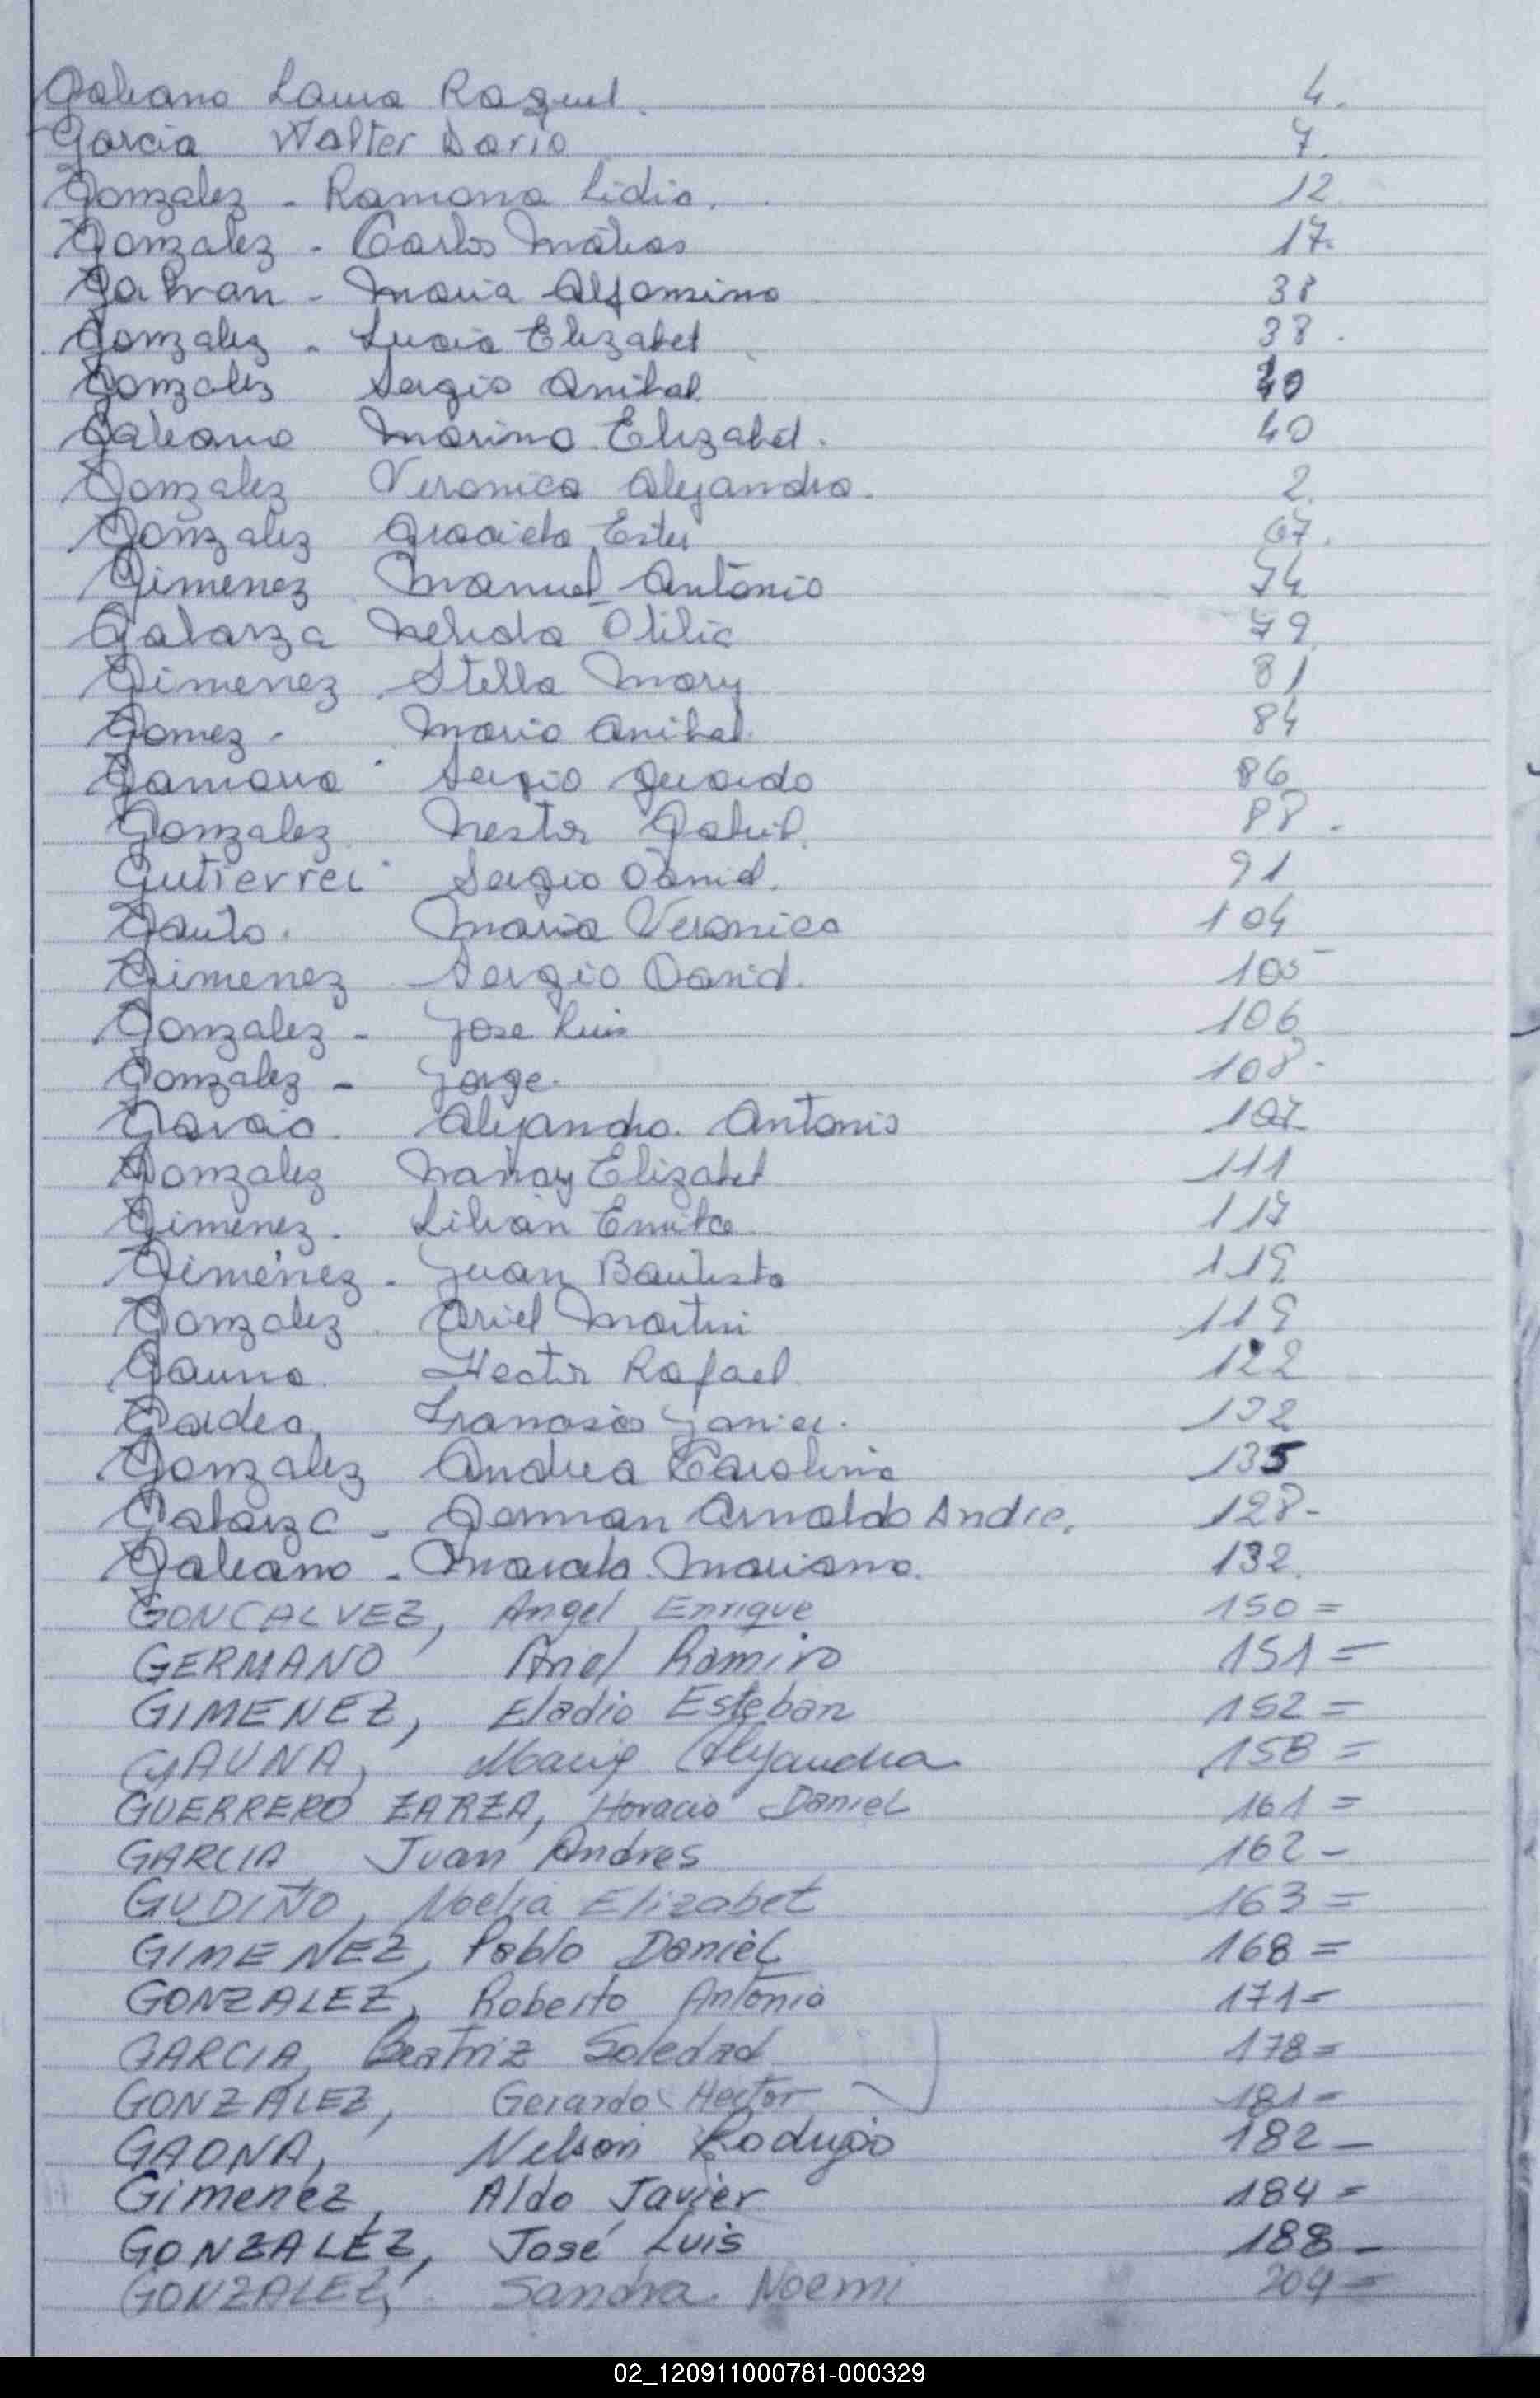 Galeano Laura Raquel. 4.
Garcia Walter Dario 7.
Gonzalez - Ramona Lidia. 12.
Gonzalez - Carlos Matias 17.
Galvan - Maria Alfonsina 38
Gonzalez - Lucia Elizabet 38.
Gonzalez Sergio Anibal 40
Galeano Marina Elizabet. 40
Gonzalez Veronica Alejandra. 2.
Gonzalez Graciela Ester 67.
Gimenez Manuel Antonio 74
Galarza Nelida Otilia 79
Gimenez Stella Mary 81
Gomez - Mario Anibal. 84
Gamarra Sergio Gerardo 86
Gonzalez Nestor Gabriel. 88.
Gutierrez Sergio Daniel. 91
Gauto. Maria Veronica 104
Gimenez Sergio David. 105
Gonzalez - Jose Luis 106
Gonzalez - Jorge. 108-
Garcia. Alejandro. Antonio 107
Gonzalez Nancy Elizabet 111
Gimenez. Lilian Emilce 117
Gimenez - Juan Bautista 119
Gonzalez. Ariel Martin 119
Gauna. Hector Rafael. 122
Francisco Javier. 132
Gonzalez Andrea Carolina 135
Galarza - German Arnaldo Andre. 128-
Galeano - Marcelo Mariano. 132.
GONCALVEZ, Angel Enrique 150=
GERMANO Ariel Ramiro 151=
GIMENEZ, Eladio Esteban 152=
GAUNA, Maria Alejandra 158=
GUERRERO ZARZA, Horacio Daniel 161=
GARCIA Juan Andres 162-
GUDIÑO, Noelia Elizabet 163=
GIMENEZ, Pablo Daniel 168=
GONZALEZ, Roberto Antonio 171=
GARCIA, Beatriz Soledad 178=
GONZALEZ, Gerardo Hector 181=
GAONA, Nelson Rodrigo 182-
Gimenez, Aldo Javier 184=
GONZALEZ, José Luis 188-
GONZALEZ, Sandra Noemi 204=
02_120911000781-000329